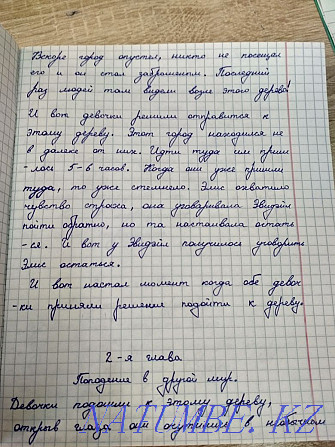 Вскоре город опустел, никто не посещал
его и он стал заброшеным. Последний
раз людей там видели возле этого дерева!
И вот девочки решили отправится к
этому дереву. Этот город находился не
в далеке от них. Идти туда им приш
-лось 5-6 часов. Когда они уже пришли
туда, то уже стемнело. Элис охватило
чувство страха, она уговаривала Эвидэйл
пойти обратно, но та настаивала остать
-ся. И вот у Эвидэйл получилось уговорить
Элис остаться.
И вот настал момент когда обе девоч
-ки приняли решение подойти к дереву.
2-я глава
Попадение в другой мир.
Девочки подошли к этому дереву,
открыв глаза они очутились в
NATUMBE.KZ